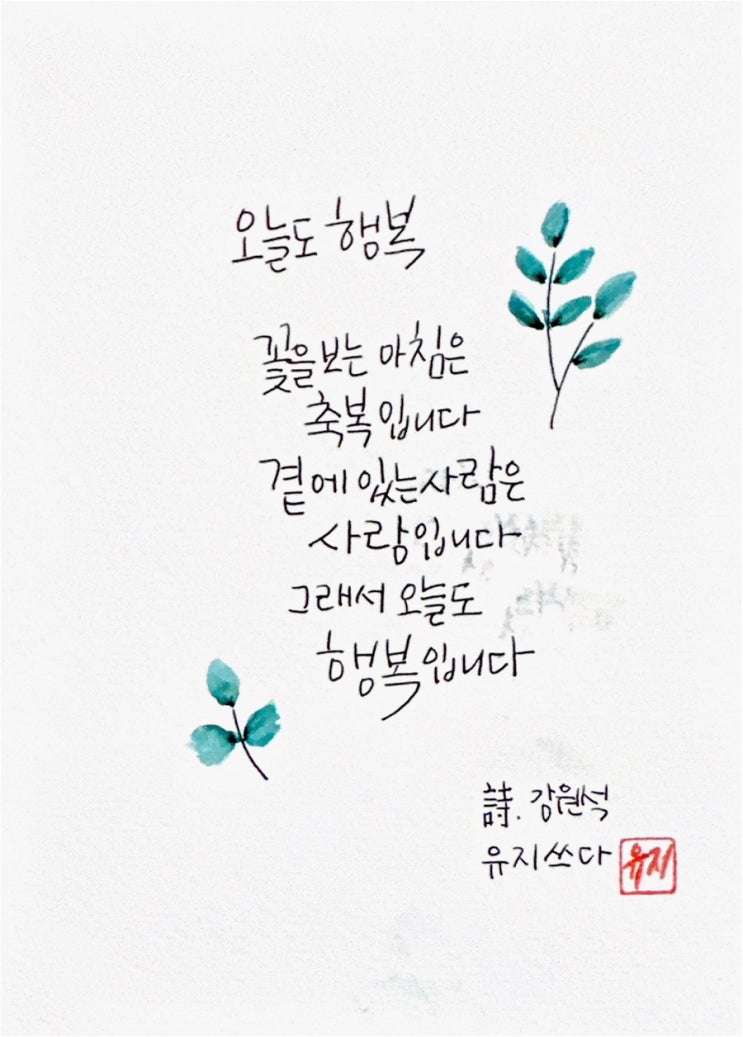 오늘도 행복
꽃을 보는 아침은
축복입니다
곁에 있는 사람은
사랑입니다
그래서 오늘도
행복입니다
詩. 강원석
유지쓰다 유지